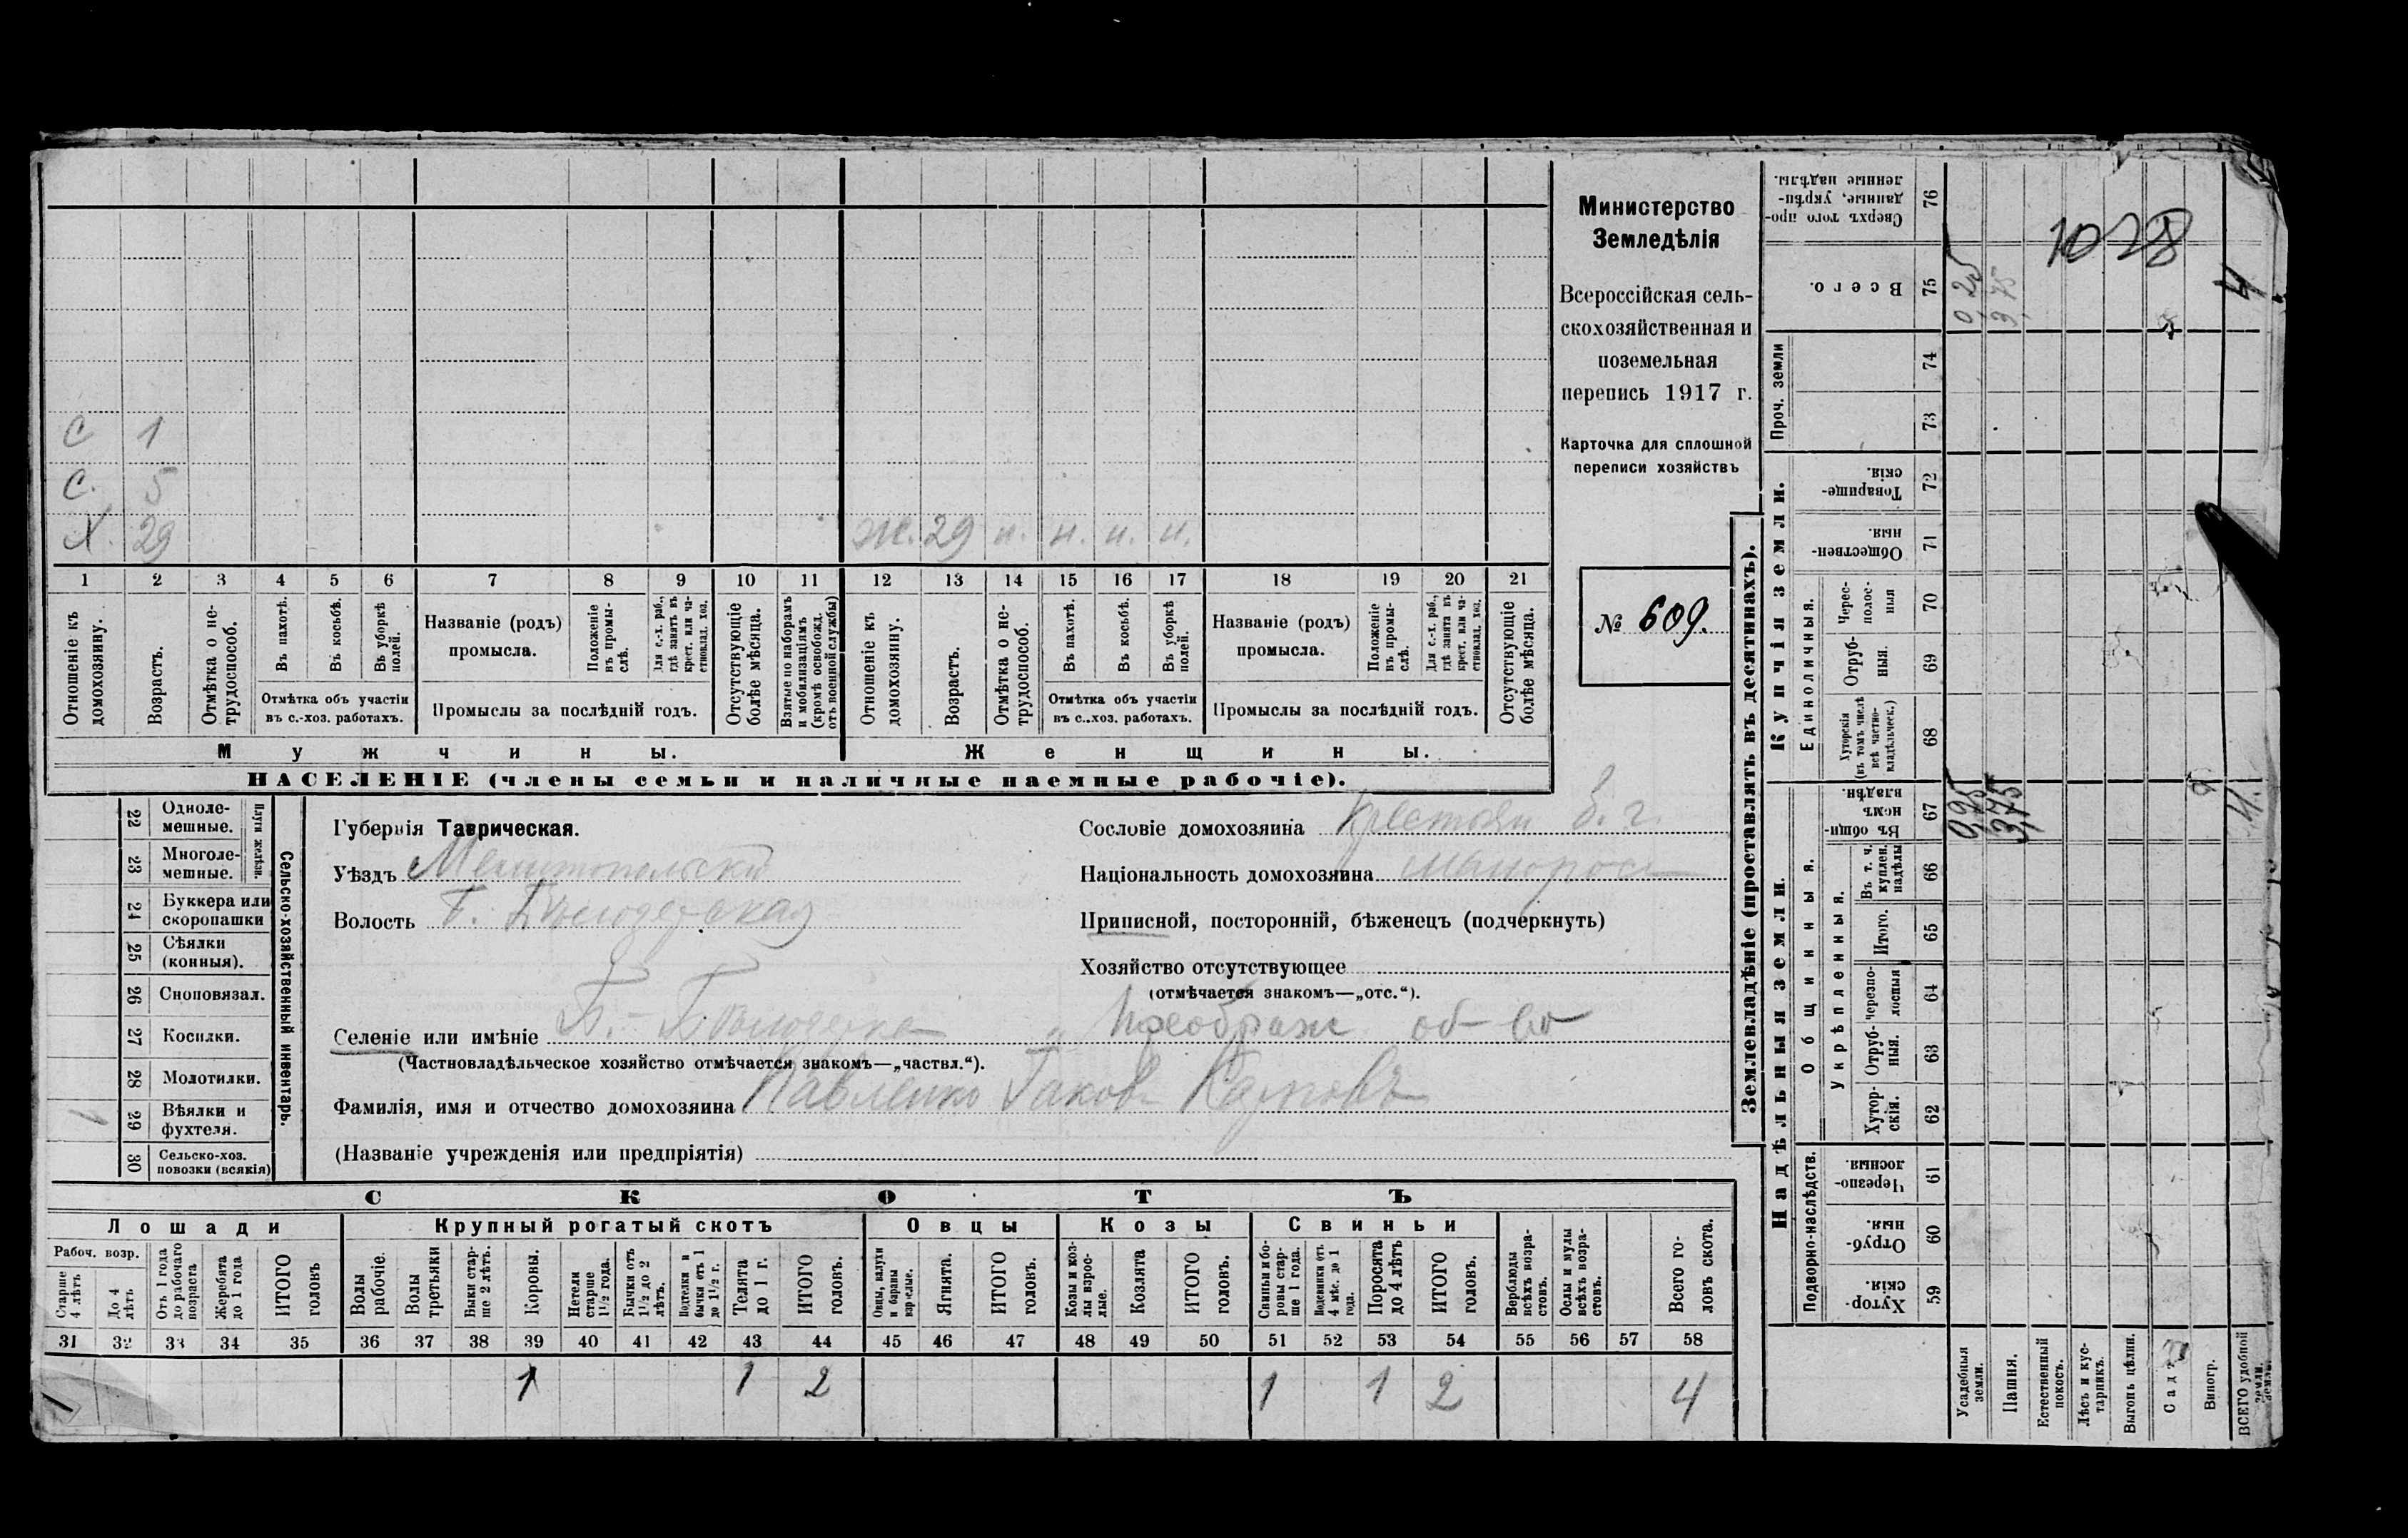 Министерство
Земледѣлія
Всероссійская сель-
скохозяйственная и
поземельная
перепись 1917 г.
Карточка для сплошной
переписи хозяйствъ
№ 609.
С 1
С. 5
Х. 29
Ж. 29 н. н. н. н.
1 2 3 4 5 6 7 8 9 10 11 12 13 14 15 16 17 18 19 20 21
Отношеніе къ домохозяину.
Возрастъ.
Отмѣтка о не-трудоспособ.
Въ пахотѣ.
Въ косьбѣ.
Въ уборкѣ полей.
Отмѣтка объ участіи
въ с.-хоз. работахъ.
Названіе (родъ)
промысла.
Положеніе въ промы-слѣ.
Для с.-х. раб., гдѣ занятъ въ крест. или ча-стновлад. хоз.
Промыслы за послѣдній годъ.
Отсутствующіе болѣе мѣсяца.
Взятые по наборамъ и мобилизаціямъ (кромѣ освобожд. отъ военной службы)
Отношеніе къ домохозяину.
Возрастъ.
Отмѣтка о не-трудоспособ.
Въ пахотѣ.
Въ косьбѣ.
Въ уборкѣ полей.
Отмѣтка объ участіи
въ с.-хоз. работахъ.
Названіе (родъ)
промысла.
Положеніе въ промы-слѣ.
Для с.-х. раб., гдѣ занята въ крест. или ча-стновлад. хоз.
Промыслы за послѣдній годъ.
Отсутствующіе болѣе мѣсяца.
Мужчины. Женщины.
НАСЕЛЕНІЕ (члены семьи и наличные наемные рабочіе).
Сельско-хозяйственный инвентарь.
Плуги желѣзн.
22 Одноле-мешные.
23 Многоле-мешные.
24 Буккера или скоропашки
25 Сѣялки (конныя).
26 Сноповязал.
27 Косилки.
28 Молотилки.
29 Вѣялки и фухтеля.
30 Сельско-хоз. повозки (всякія)
Губернія Таврическая.
Уѣздъ Мелитопольскій
Волость Б. Бѣлозерская
Селеніе или имѣніе Б.-Бѣлозерка Преображ об-во
(Частновладѣльческое хозяйство отмѣчается знакомъ—„частвл.“).
Фамилія, имя и отчество домохозяина Павленко Яковъ Карповъ
(Названіе учрежденія или предпріятія)
Сословіе домохозяина Крестьян б. г.
Національность домохозяина малоросс
Приписной, посторонній, бѣженецъ (подчеркнуть)
Хозяйство отсутствующее
(отмѣчается знакомъ—„отс.“).
СКОТЪ
Лошади Крупный рогатый скотъ Овцы Козы Свиньи
Рабоч. возр.
Старше 4 лѣтъ
До 4 лѣтъ
Отъ 1 года до рабочаго возраста
Жеребята до 1 года
ИТОГО головъ
Волы рабочіе.
Волы третьяки
Быки стар-ше 2 лѣтъ.
Коровы.
Нетели старше 1½ года.
Бычки отъ 1½ до 2 лѣтъ.
Подтелки и бычки отъ 1 до 1½ г.
Телята до 1 г.
ИТОГО головъ.
Овцы, валухи и бараны взрослые.
Ягнята.
ИТОГО головъ.
Козы и коз-лы взрос-лые.
Козлята
ИТОГО головъ.
Свиньи и бо-ровы стар-ше 1 года.
Подсвинки отъ 4 мѣс. до 1 года.
Поросята до 4 лѣтъ
ИТОГО головъ.
Верблюды всѣхъ возра-стовъ.
Ослы и мулы всѣхъ возра-стовъ.
Всего го-ловъ скота.
31 32 33 34 35 36 37 38 39 40 41 42 43 44 45 46 47 48 49 50 51 52 53 54 55 56 57 58
1 1 2 1 1 2 4
Землевладѣніе (проставлять въ десятинахъ).
Надѣльныя земли. Купчія земли.
Подворно-наслѣдств.
Общинныя.
Укрѣпленныя.
Единоличныя.
Проч. земли
Сверхъ того про-данные, укрѣп-ленные надѣлы. 76
Всего. 75
74
73
Товарище-скія. 72
Обществен-ныя. 71
Черес-полос-ныя 70
Отруб-ныя. 69
Хуторскія (въ томъ числѣ всѣ частно-владѣльческ.) 68
Въ общи-номъ владѣн. 67
Въ т. ч. куплен. надѣлы 66
Итого. 65
черезпо-лосныя 64
Отруб-ныя. 63
Хутор-скія. 62
Черезпо-лосныя. 61
Отруб-ныя. 60
Хутор-скія. 59
Усадебныя земли.
Пашня.
Естественный покосъ.
Лѣсъ и кус-тарникъ.
Выгонъ цѣлин.
Садъ
Виногр.
ВСЕГО удобной земли.
0,25
3,75
0,25
3,75
1028
4
4.